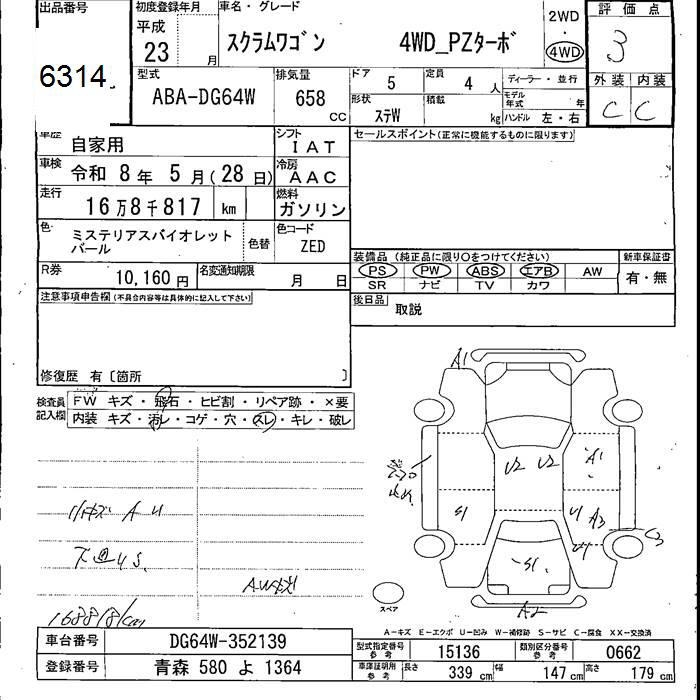 出品番号
6314
初度登録年月
平成
23 月
車名・グレード
スクラムワゴン 4WD_PZターボ
2WD
・
4WD
評価点
3
外装 内装
C C
型式
ABA-DG64W
排気量
658 CC
ドア 5
定員 4 人
形状 ステW
積載 kg
ディーラー・並行
モデル年式 年
ハンドル 左・右
車歴 自家用
シフト IAT
車検 令和 8 年 5 月(28 日)
冷房 AAC
走行 16万8千817 km
燃料 ガソリン
色 ミステリアスバイオレット
パール
色替
色コード ZED
R券 10,160 円
名変通知期限 月 日
セールスポイント(正常に機能するものに限ります)
装備品 (純正品に限り○をつけてください)
PS PW ABS エアB AW
SR ナビ TV カワ
新車保証書
有・無
後日品
取説
注意事項申告欄(不具合内容等は具体的に記入して下さい)
修復歴 有〔箇所 〕
検査員
記入欄
FW キズ・飛石・ヒビ割・リペア跡・×要
内装 キズ・汚レ・コゲ・穴・スレ・キレ・破レ
小キズ A U
下廻りS.
168818/cm
A1
U2 U2
A1
S1
A3
C3
S1
A2
スペア
A－キズ E－エクボ U－凹み W－補修跡 S－サビ C－腐食 XX－交換済
車台番号 DG64W-352139
登録番号 青森 580 よ 1364
型式指定番号
参考
15136
類別区分番号
参考
0662
車庫証明用
参考
長さ 339 cm
幅 147 cm
高さ 179 cm